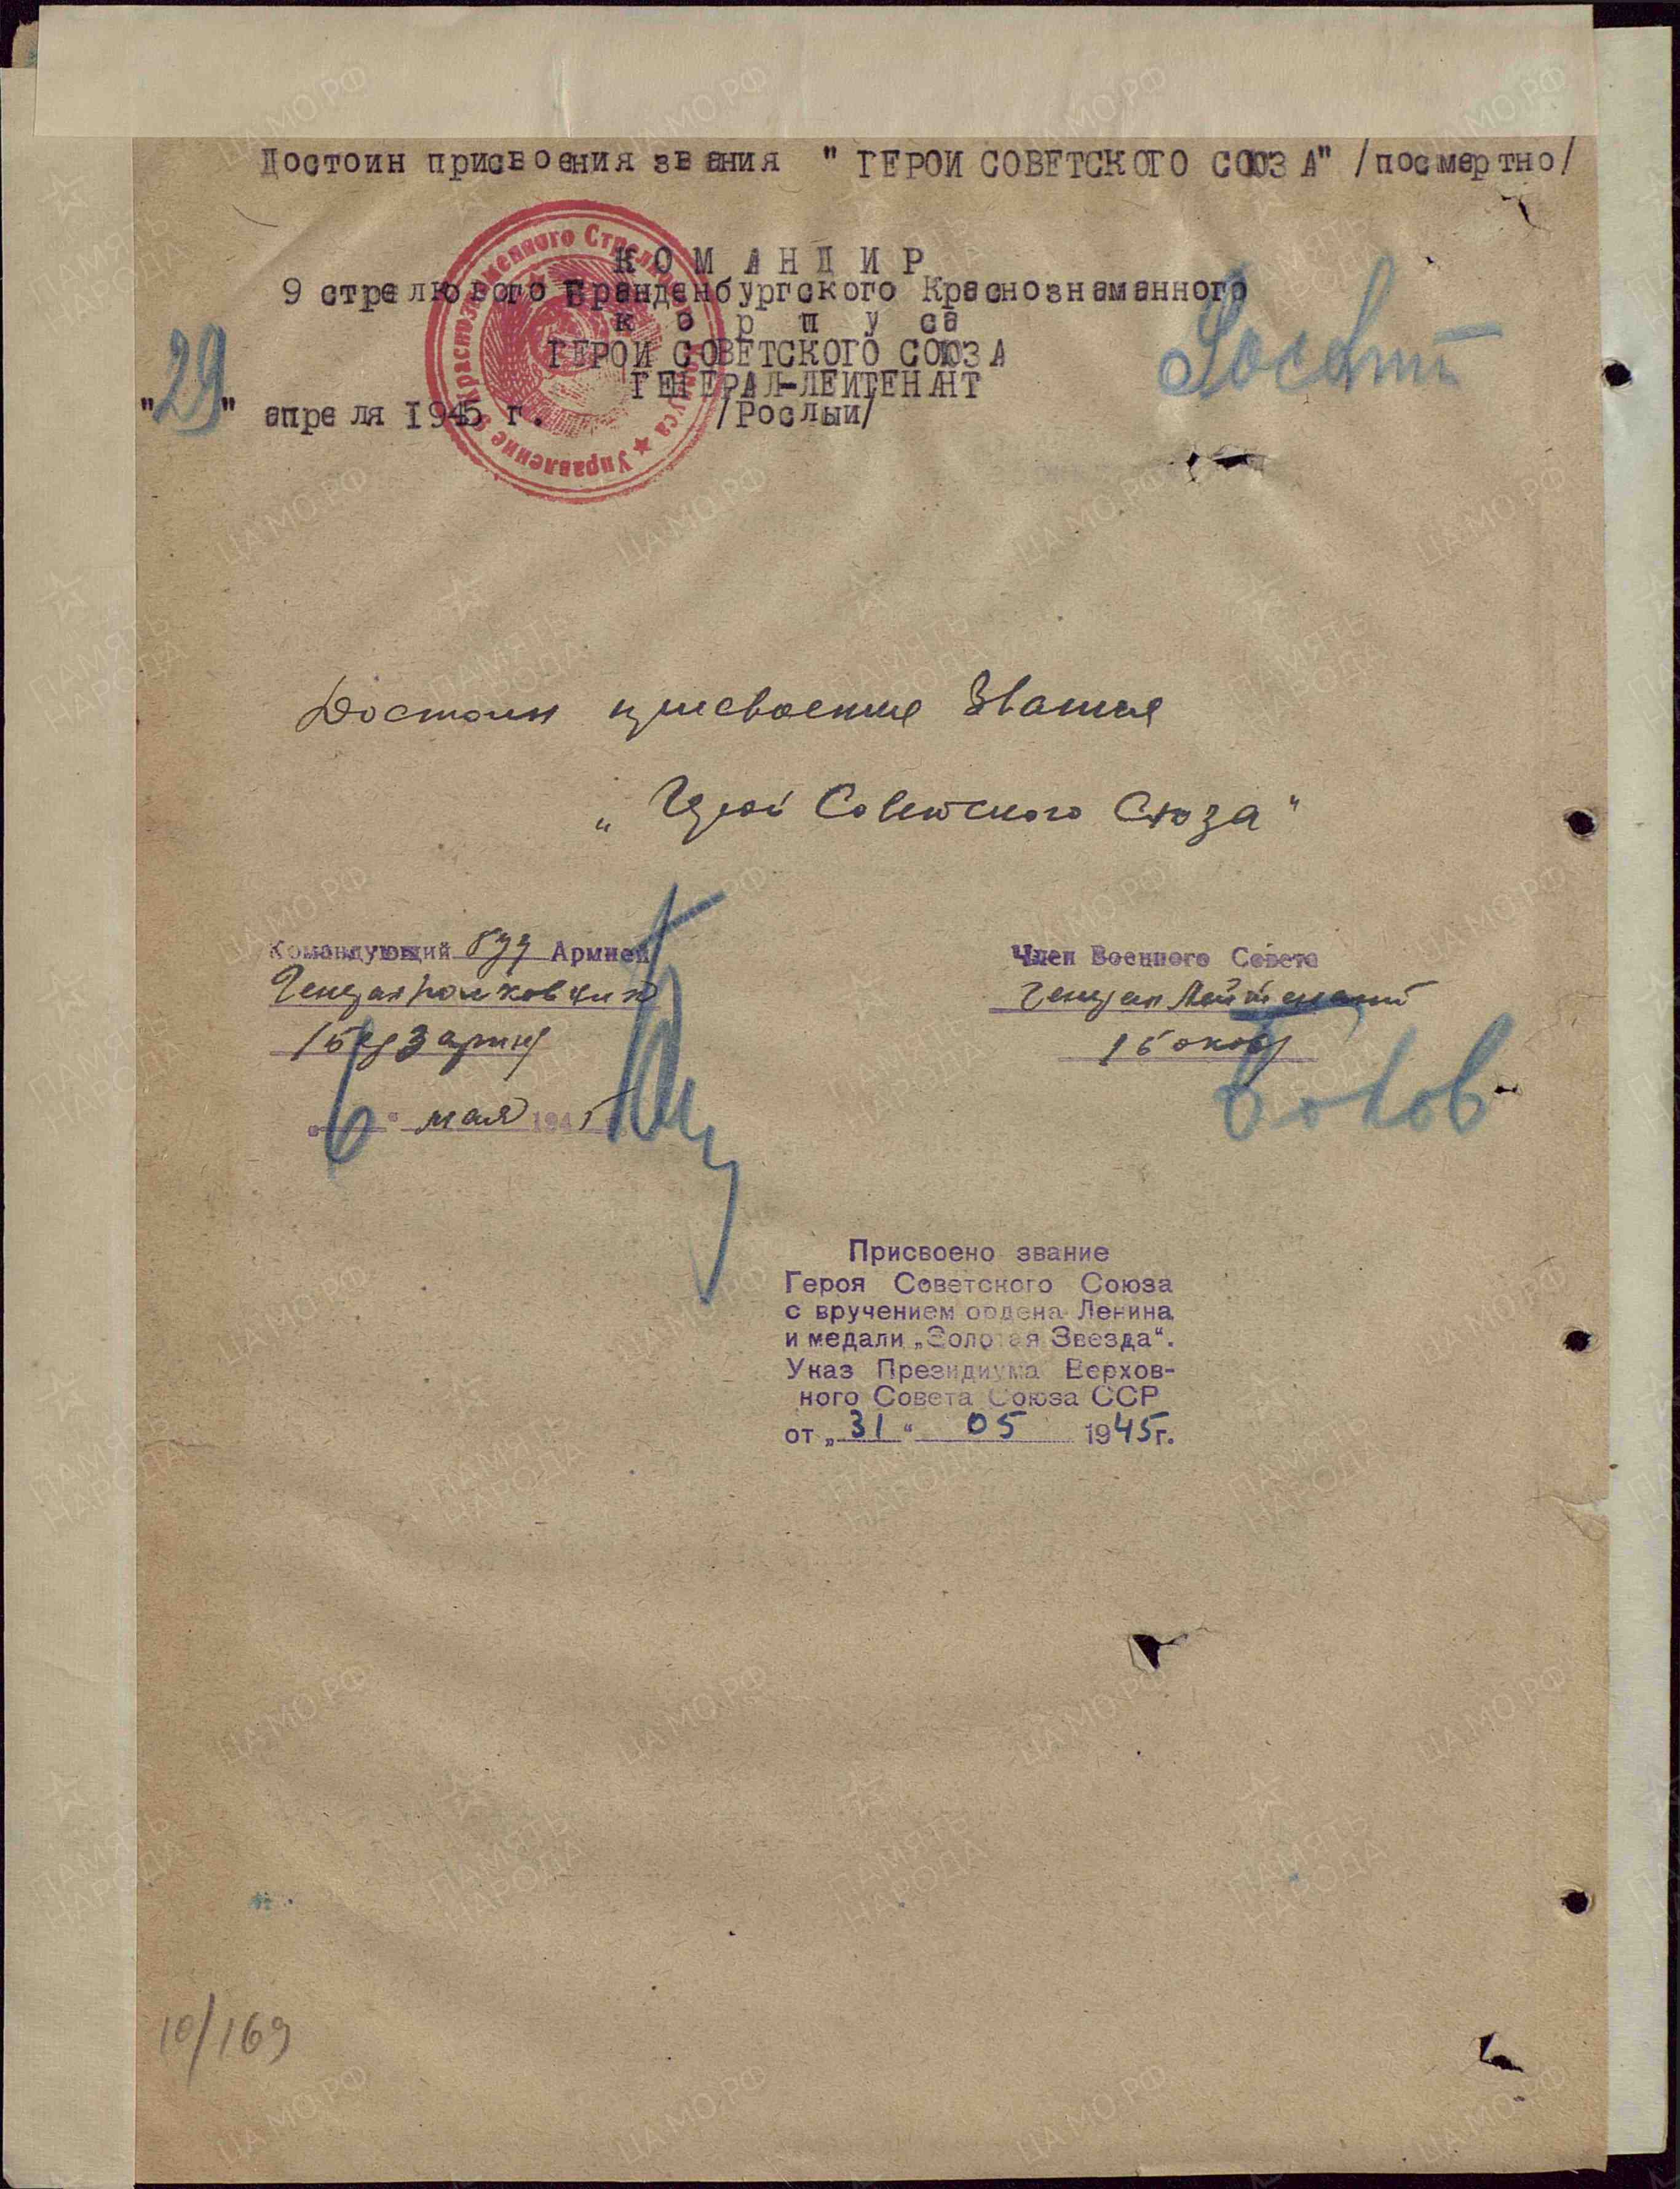 Достоин присвоения звания " ГЕРОИ СОВЕТСКОГО СОЮЗА" /посмертно/
КОМАНДИР
9 стрелкового Бранденбургского Краснознаманного
корпуса
ГЕРОИ СОВЕТСКОГО СОЮЗА
ГЕНЕРАЛ-ЛЕИТЕНАНТ
"29" апреля 1945 г. /Рослыи/
Управление Краснознаменного Стрелкового Корпуса
Достоин присвоения звания
„ Герой Советского Союза "
Командующий 5 уд Армией
Генерал полковник
/Берзарин/
„6" мая 1945
Член Военного Совета
Генерал Лейтенант
/Боков/
Боков
Присвоено звание
Героя Советского Союза
с вручением ордена Ленина
и медали „Золотая Звезда".
Указ Президиума Верхов-
ного Совета Союза ССР
от „31" 05 1945г.
10/169
ЦАМО.РФ
ПАМЯТЬ
НАРОДА